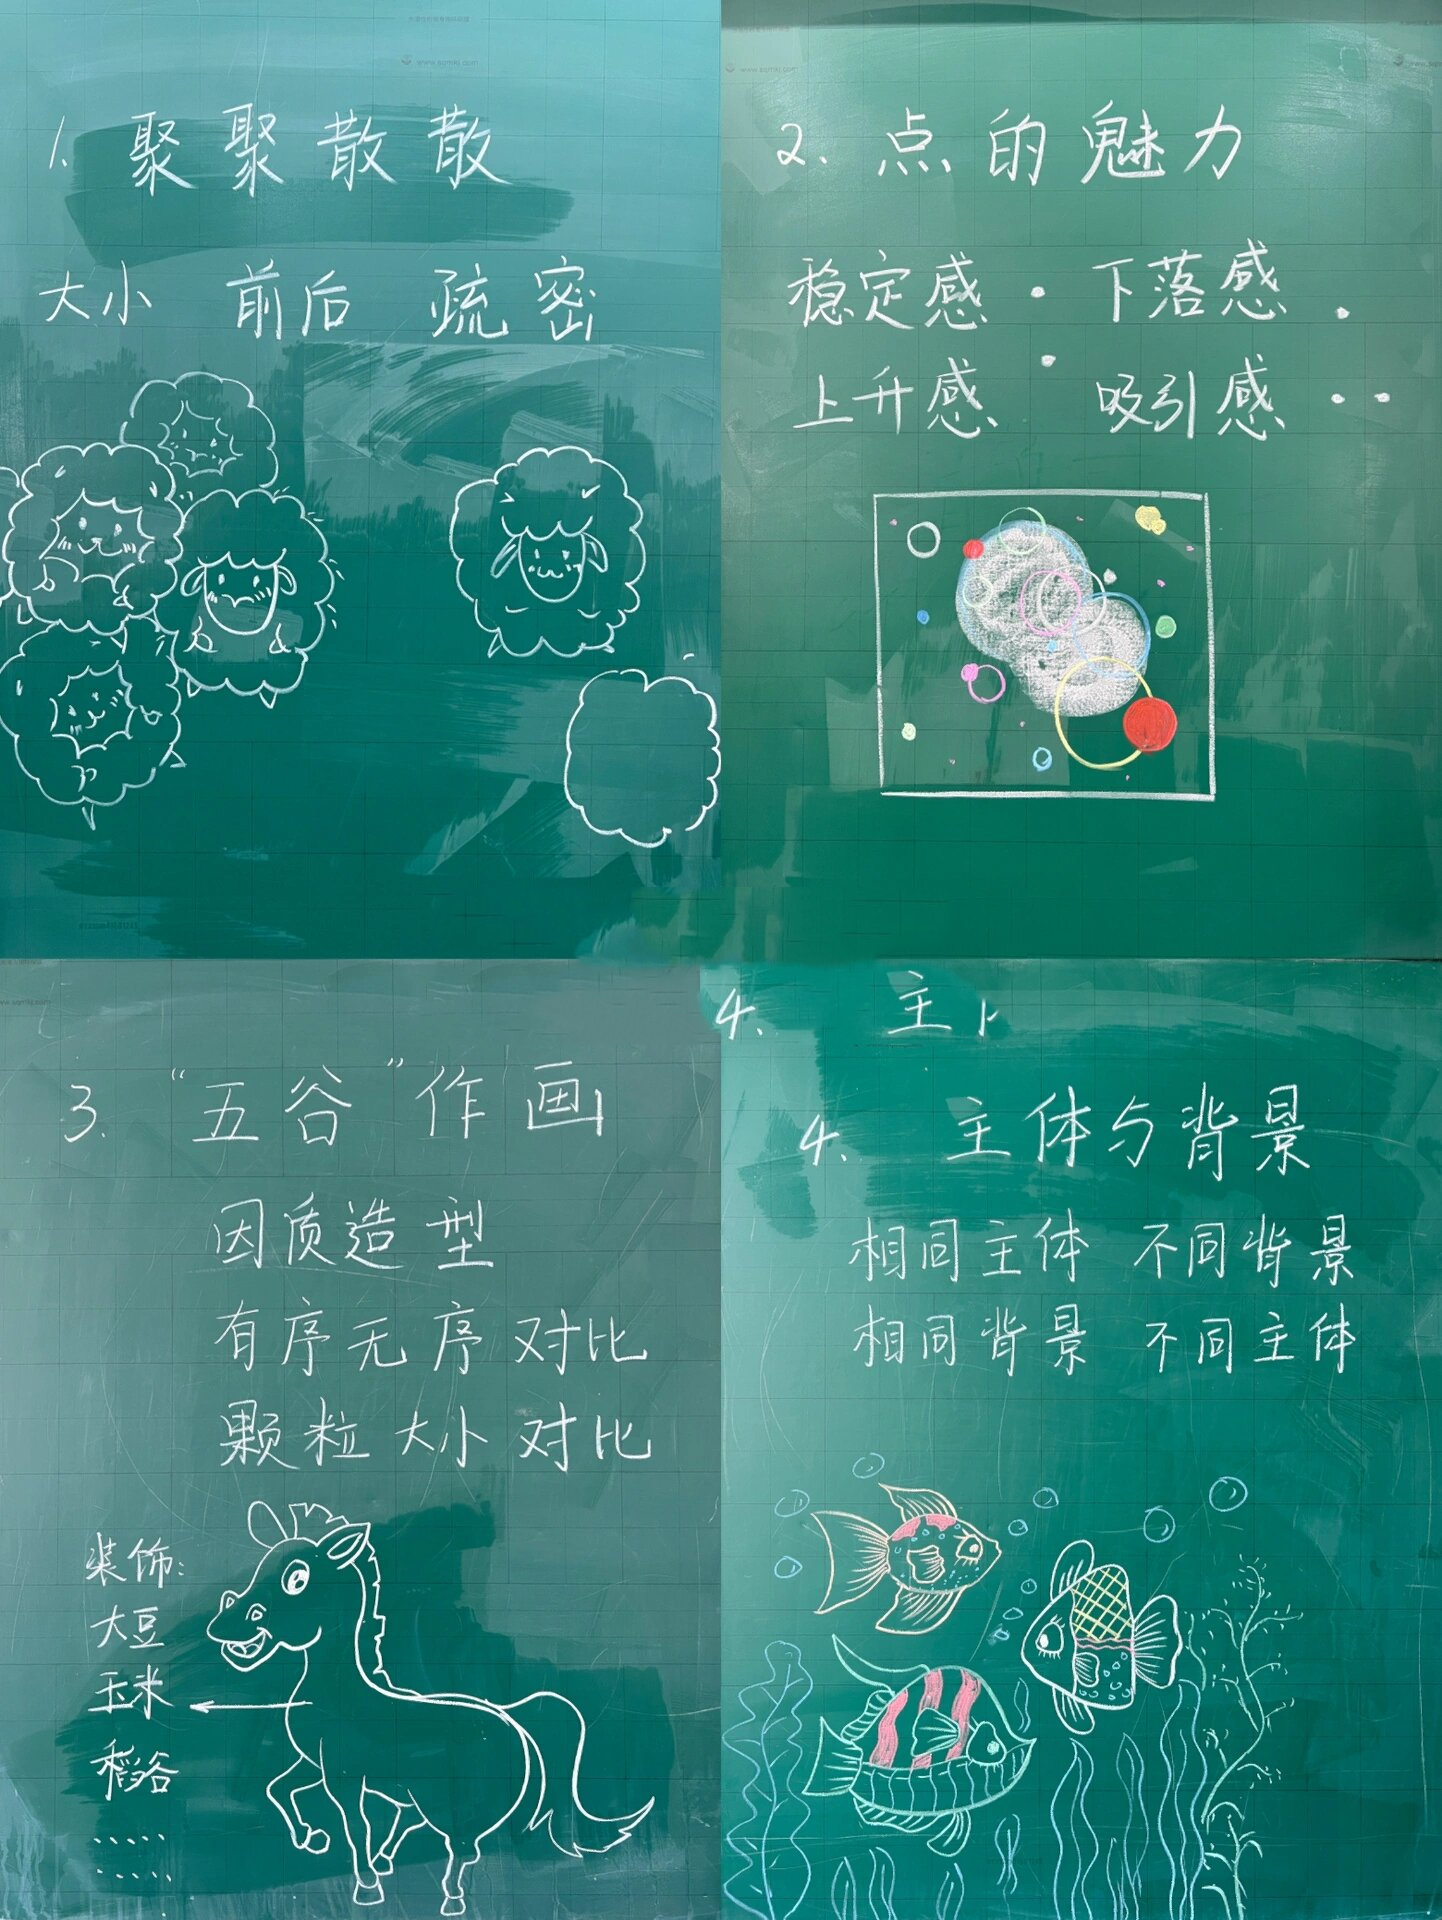 www.sqmki.com
1. 聚聚散散
大小 前后 疏密
2. 点的魅力
稳定感 · 下落感 .
上升感 · 吸引感 ··
3. “五谷”作画
因质造型
有序无序对比
颗粒大小对比
装饰:
大豆
玉米
稻谷
......
......
4. 主
4. 主体与背景
相同主体 不同背景
相同背景 不同主体